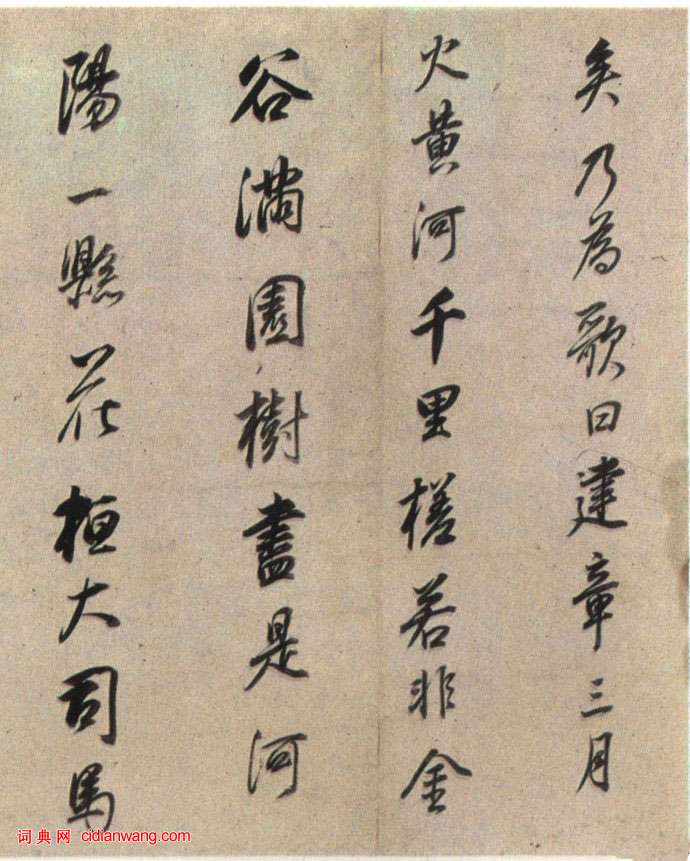 矣乃為歌曰建章三月
火黄河千里槎若非金
谷滿園樹盡是河
陽一縣花桓大司馬
词典网 cidianwang.com